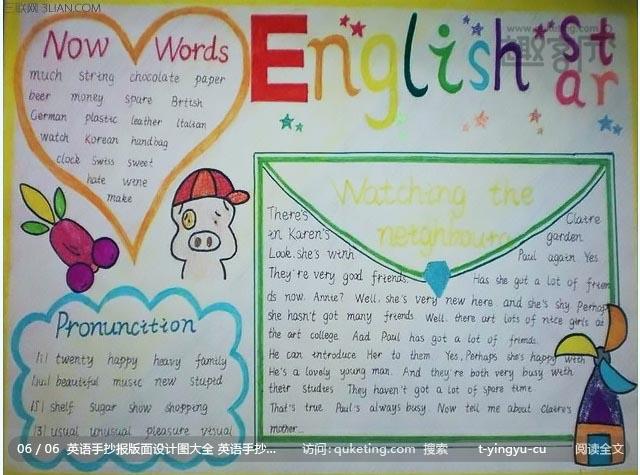 三联网 3LIAN.COM
趣客
quketing.com
English Star
Now Words
much string chocolate paper
beer money spare British
German plastic leather Italian
watch Korean handbag
clock Swiss sweet
hate wine
make
Watching the
neighbours
There's Claire
in Karen's garden
Look, she's with Paul again Yes
They're very good friends. Has she got a lot of frien
ds now. Annie? Well, she's very new here and she's shy. Perhap
she hasn't got many friends Well. there art lots of nice girls at
the art college. Aad Paul has got a lot of friends.
He can introduce Her to them Yes, Perhaps she's happy with
He's a lovely young man. And they're both very busy with
their studies They haven't got a lot of spare time
That's true. Paul's always busy. Now tell me about Claire's
mother...
Pronuncition
[i] twenty happy heavy family
[ju:] beautiful music new stupid
[ʃ] shelf sugar show shopping
[ʒ] usual unusual pleasure visual
06 / 06 英语手抄报版面设计图大全 英语手抄... 访问: quketing.com 搜索 t-yingyu-cu 阅读全文